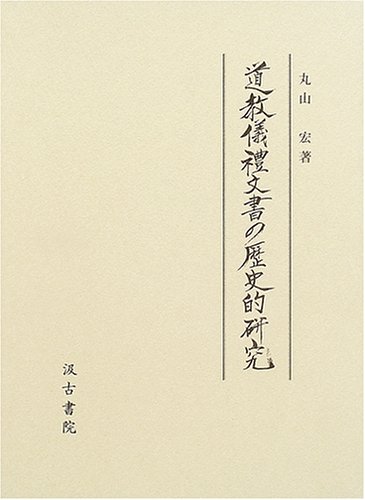 丸山 宏著
道教儀禮文書の歴史的研究
汲古書院